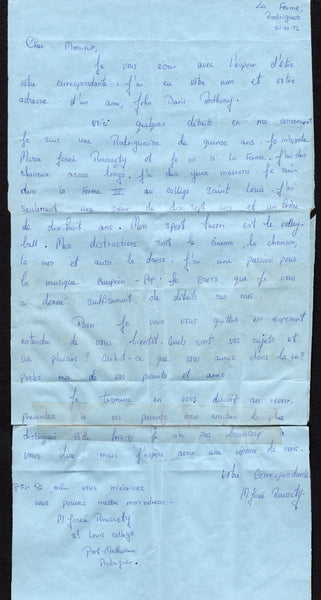 La Ferme,
Rodrigues.
Cher Monsieur,
Je vous écris avec l'espoir d'être
votre correspondante. J'ai eu votre nom et votre
adresse d'un ami, John Davis Anthony.
Voici quelques détails en me concernant
Je suis une Rodriguaise de quinze ans. Je m'appelle
Marie Joseé Roussety et je vis à la Ferme. J'ai des
cheveux assez longs. J'ai des yeux marrons. Je suis
dans la Forme III au collège Saint Louis. J'ai
seulement une sœur de dix-sept ans et un frère
de dix-huit ans. Mon sport favori est le volley-
ball. Mes distractions sont le cinema, la chanson,
la mer et aussi la danse. J'ai une passion pour
la musique européin - Pop. Je crois que je vous
ai donné suffisamment de détails sur moi.
Bon je vais vous quitter en espérant
entendre de vous bientôt. Quels sont vos sujets et
vos plaisirs? Qu'est-ce que vous aimez dans la vie?
parlez moi de vos parents et amis.
Je termine en vous disant au revoir,
presentez à vos parents mes amitiés le plus
distingués. Cette fois-ci je n'ai pas beaucoup à
vous dire mais j'espère avoir une réponse de vous.
Votre Correspondante
M. Joseé Roussety.
P.S:- Si enfin vous m'écrivez
vous pouvez mettre mon adresse:-
M. Joseé Roussety
St Louis College
Port-Mathurin
Rodrigues.